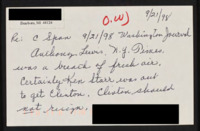 Dearborn, MI 48128
O.W)
9/21/98
Re: C Span 9/21/98 Washington Journal
Anthony Lewis, N.Y. Times,
was a breach of fresh air.
Certainly Ken Starr was out
to get Clinton, Clinton should
not resign.